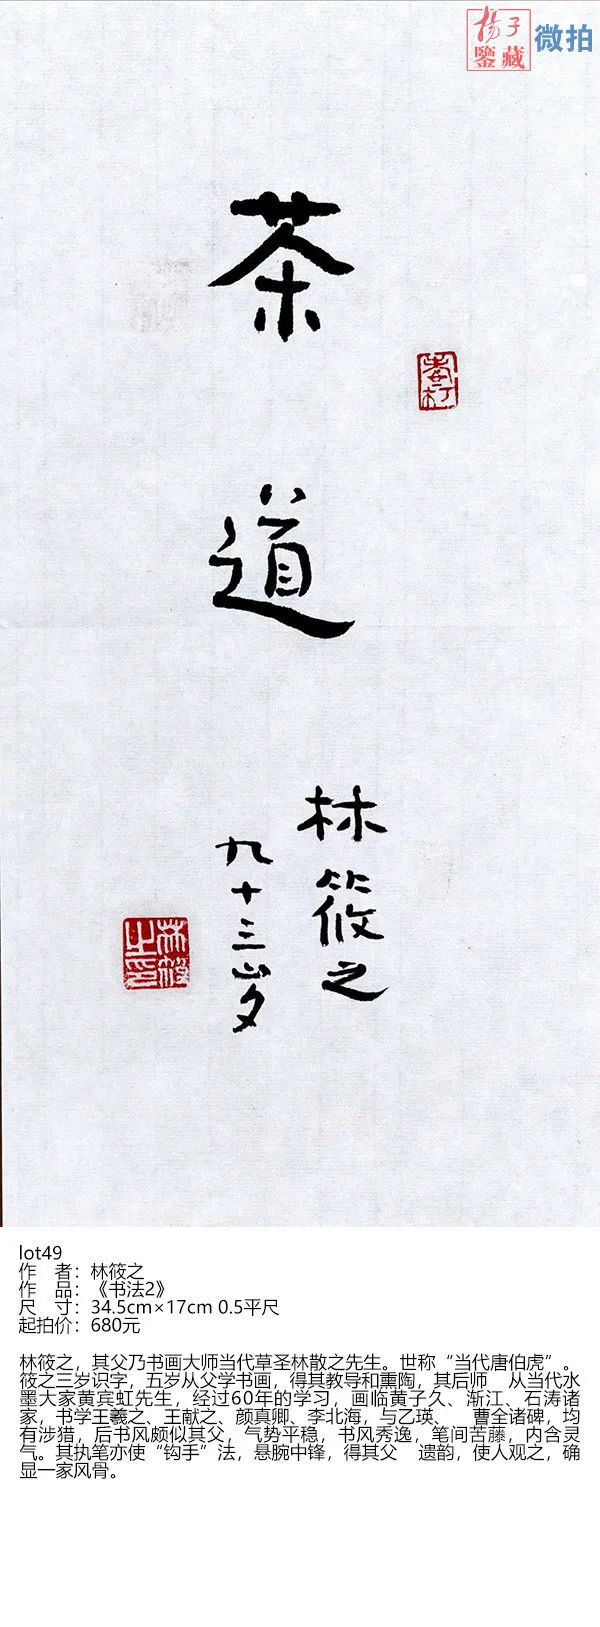 揚子
鑒藏
微拍
茶
道
林筱之
九十三岁
林筱
之印
lot49
作 者：林筱之
作 品：《书法2》
尺 寸：34.5cm×17cm 0.5平尺
起拍价：680元
林筱之，其父乃书画大师当代草圣林散之先生。世称“当代唐伯虎”。
筱之三岁识字，五岁从父学书画，得其教导和熏陶，其后师 从当代水
墨大家黄宾虹先生，经过60年的学习，画临黄子久、渐江、石涛诸
家，书学王羲之、王献之、颜真卿、李北海，与乙瑛、 曹全诸碑，均
有涉猎，后书风颇似其父，气势平稳，书风秀逸，笔间苦藤，内含灵
气。其执笔亦使“钩手”法，悬腕中锋，得其父 遗韵，使人观之，确
显一家风骨。